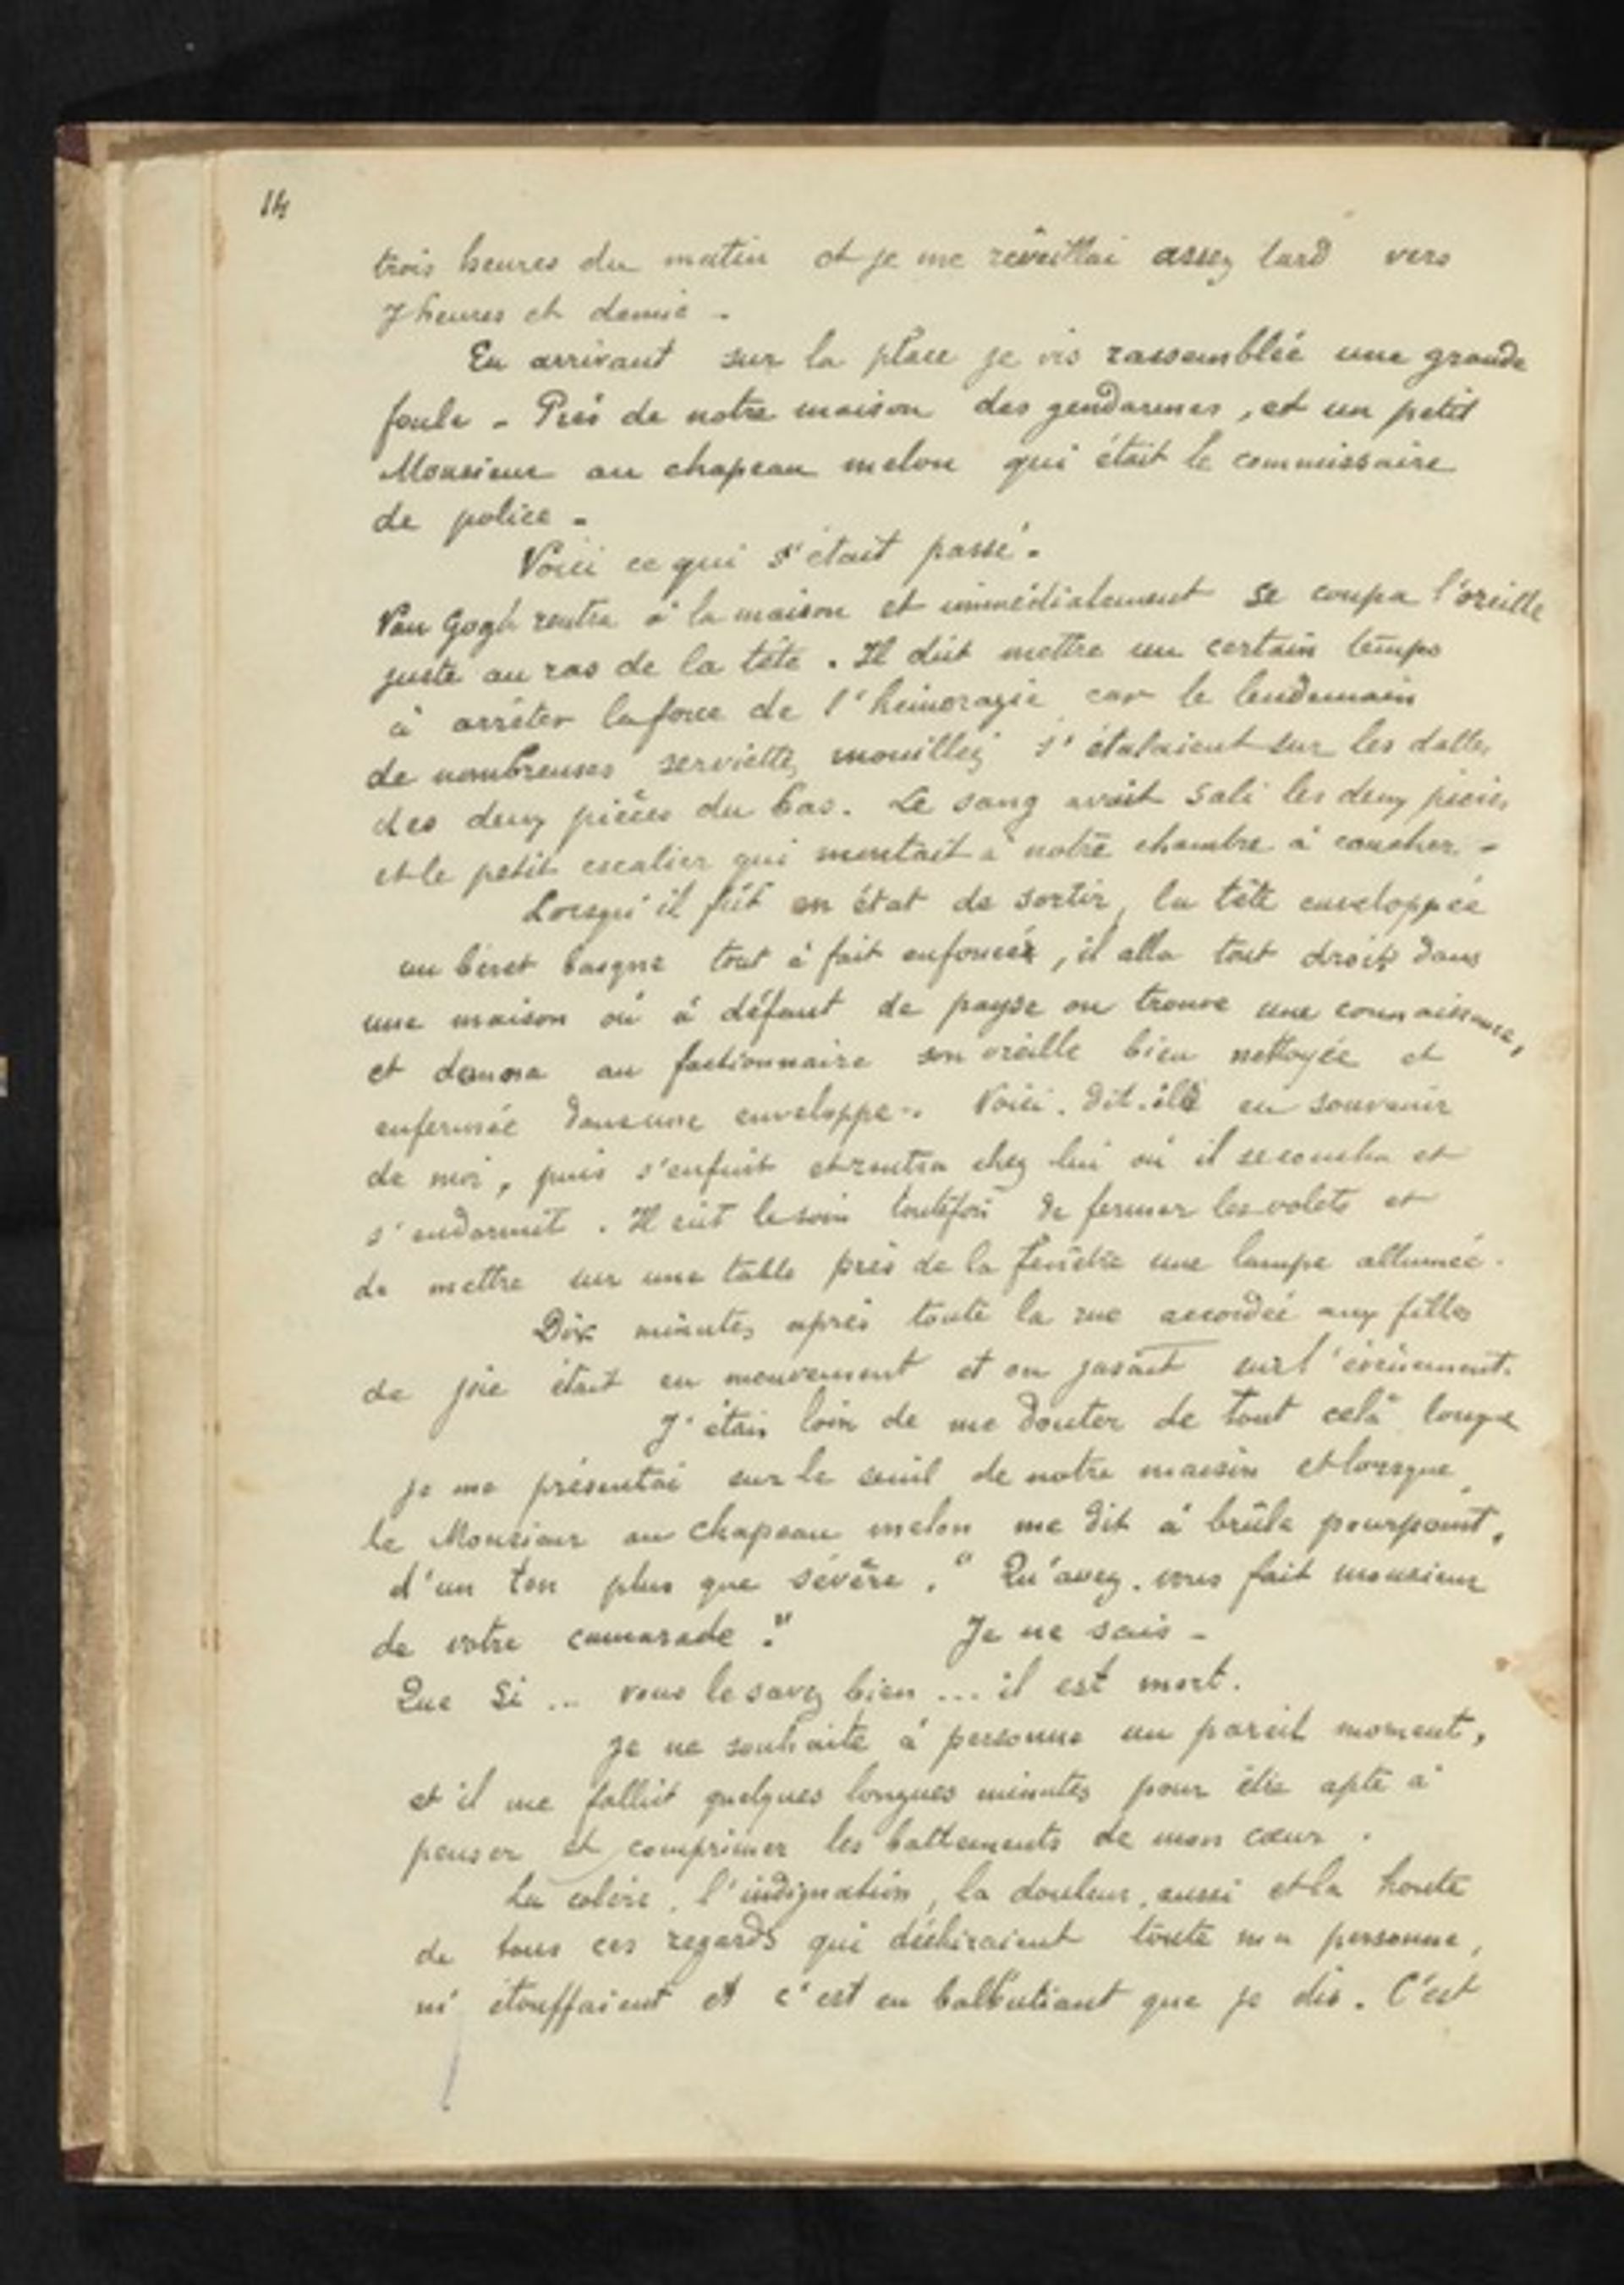 14
trois heures du matin et je me réveillai assez tard vers
7 heures et demie -
En arrivant sur la place je vis rassemblée une grande
foule - Près de notre maison des gendarmes, et un petit
Monsieur au chapeau melon qui était le commissaire
de police -
Voici ce qui s'était passé -
Van Gogh rentra à la maison et immédiatement se coupa l'oreille
juste au ras de la tête. Il dût mettre un certain temps
à arrêter la force de l'hémoragie car le lendemain
de nombreuses serviettes mouillées s'étalaient sur les dalles
des deux pièces du bas. Le sang avait sali les deux pièces
et le petit escalier qui montait à notre chambre à coucher -
Lorsqu'il fût en état de sortir, la tête enveloppée
un béret basque tout à fait enfoncé, il alla tout droit dans
une maison où à défaut de payse on trouve une connaissance,
et donna au factionnaire son oreille bien nettoyée et
enfermée dans une enveloppe -. Voici. dit-il en souvenir
de moi, puis s'enfuit et rentra chez lui où il se coucha et
s'endormit. Il eût le soin toutefois de fermer les volets et
de mettre sur une table près de la fenêtre une lampe allumée.
Dix minutes après toute la rue accordée aux filles
de joie était en mouvement et on jasait sur l'évènement.
J'étais loin de me douter de tout celà lorsque
je me présentai sur le seuil de notre maison et lorsque
le Monsieur au chapeau melon me dit à brûle pourpoint,
d'un ton plus que sévère. "Qu'avez-vous fait monsieur
de votre camarade." Je ne sais -
Que si ... vous le savez bien ... il est mort.
Je ne souhaite à personne un pareil moment,
et il me fallut quelques longues minutes pour être apte à
penser et comprimer les battements de mon cœur.
La colère, l'indignation, la douleur, aussi et la honte
de tous ces regards qui déchiraient toute ma personne,
m'étouffaient et c'est en balbutiant que je dis. C'est